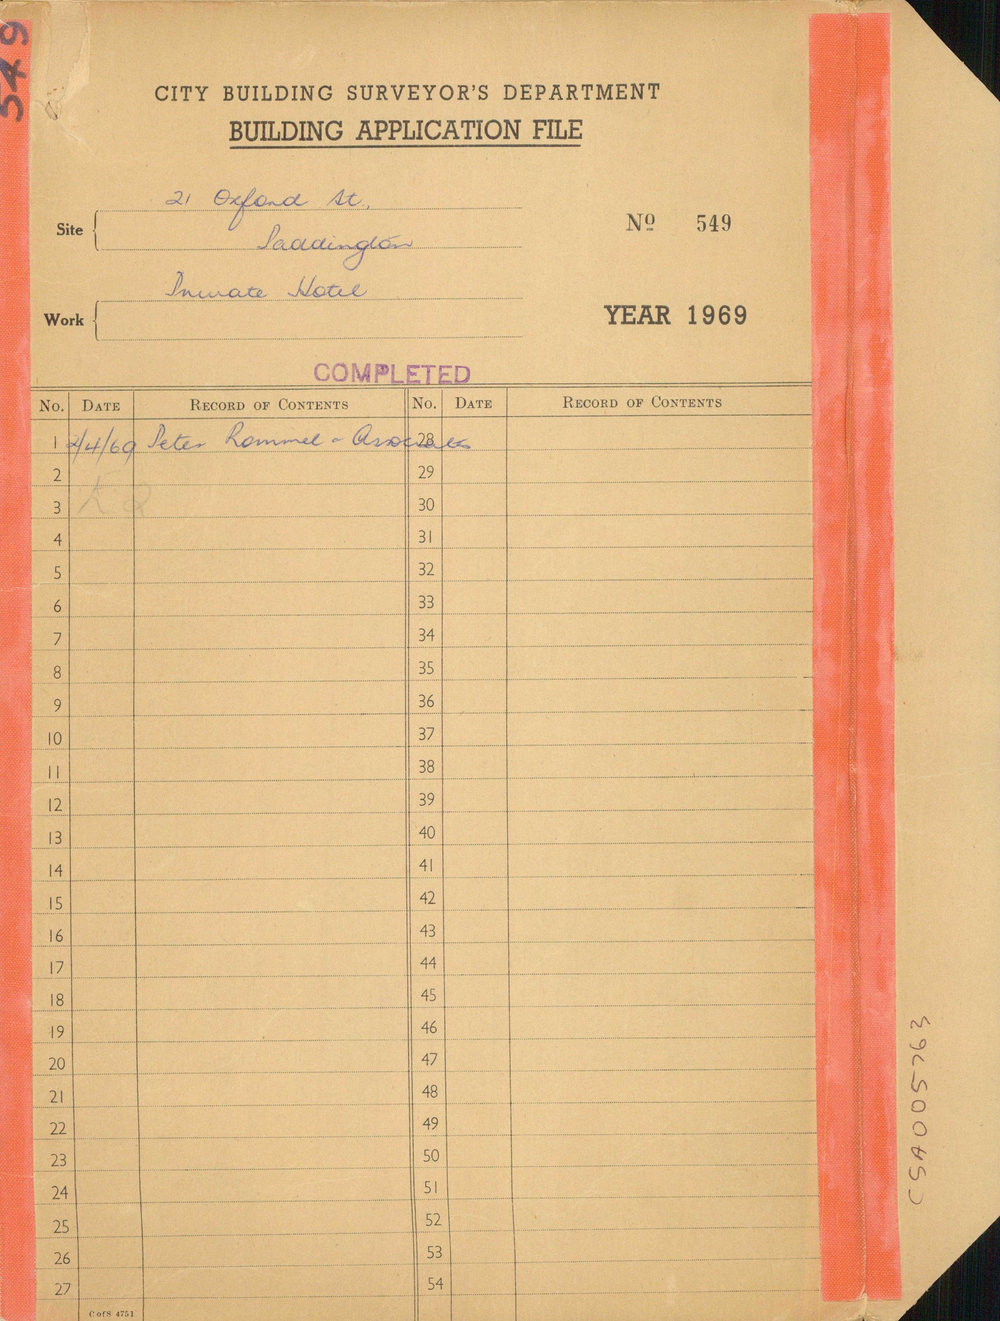 549
CITY BUILDING SURVEYOR'S DEPARTMENT
BUILDING APPLICATION FILE
Site
21 Oxford St.,
Paddington
Nº 549
Work
Private Hotel
YEAR 1969
COMPLETED
No. DATE RECORD OF CONTENTS No. DATE RECORD OF CONTENTS
1 2/4/69 Peter Rommel - Associates 28
2 29
3 30
4 31
5 32
6 33
7 34
8 35
9 36
10 37
11 38
12 39
13 40
14 41
15 42
16 43
17 44
18 45
19 46
20 47
21 48
22 49
23 50
24 51
25 52
26 53
27 54
C of S 4751
CSA005763